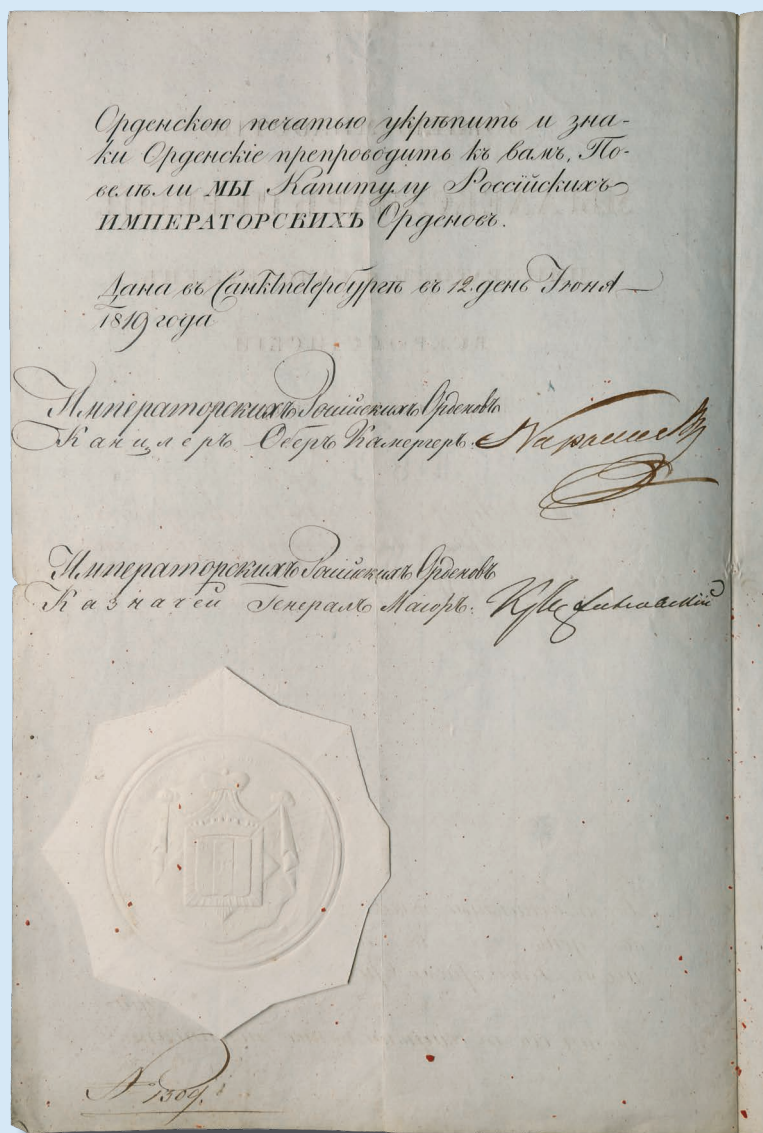 Орденскою печатью укрѣпить и зна-
ки Орденскіе препроводить къ вамъ, По-
велѣли МЫ Капитулу Россійскихъ
ИМПЕРАТОРСКИХЪ Орденовъ.
Дана въ Санктпетербургѣ въ 12. день Іюня
1819 года
Императорскихъ Россійскихъ Орденовъ
Канцлеръ Оберъ Камергеръ.
Императорскихъ Россійскихъ Орденовъ
Казначей Генералъ Маіоръ.
№ 1309.